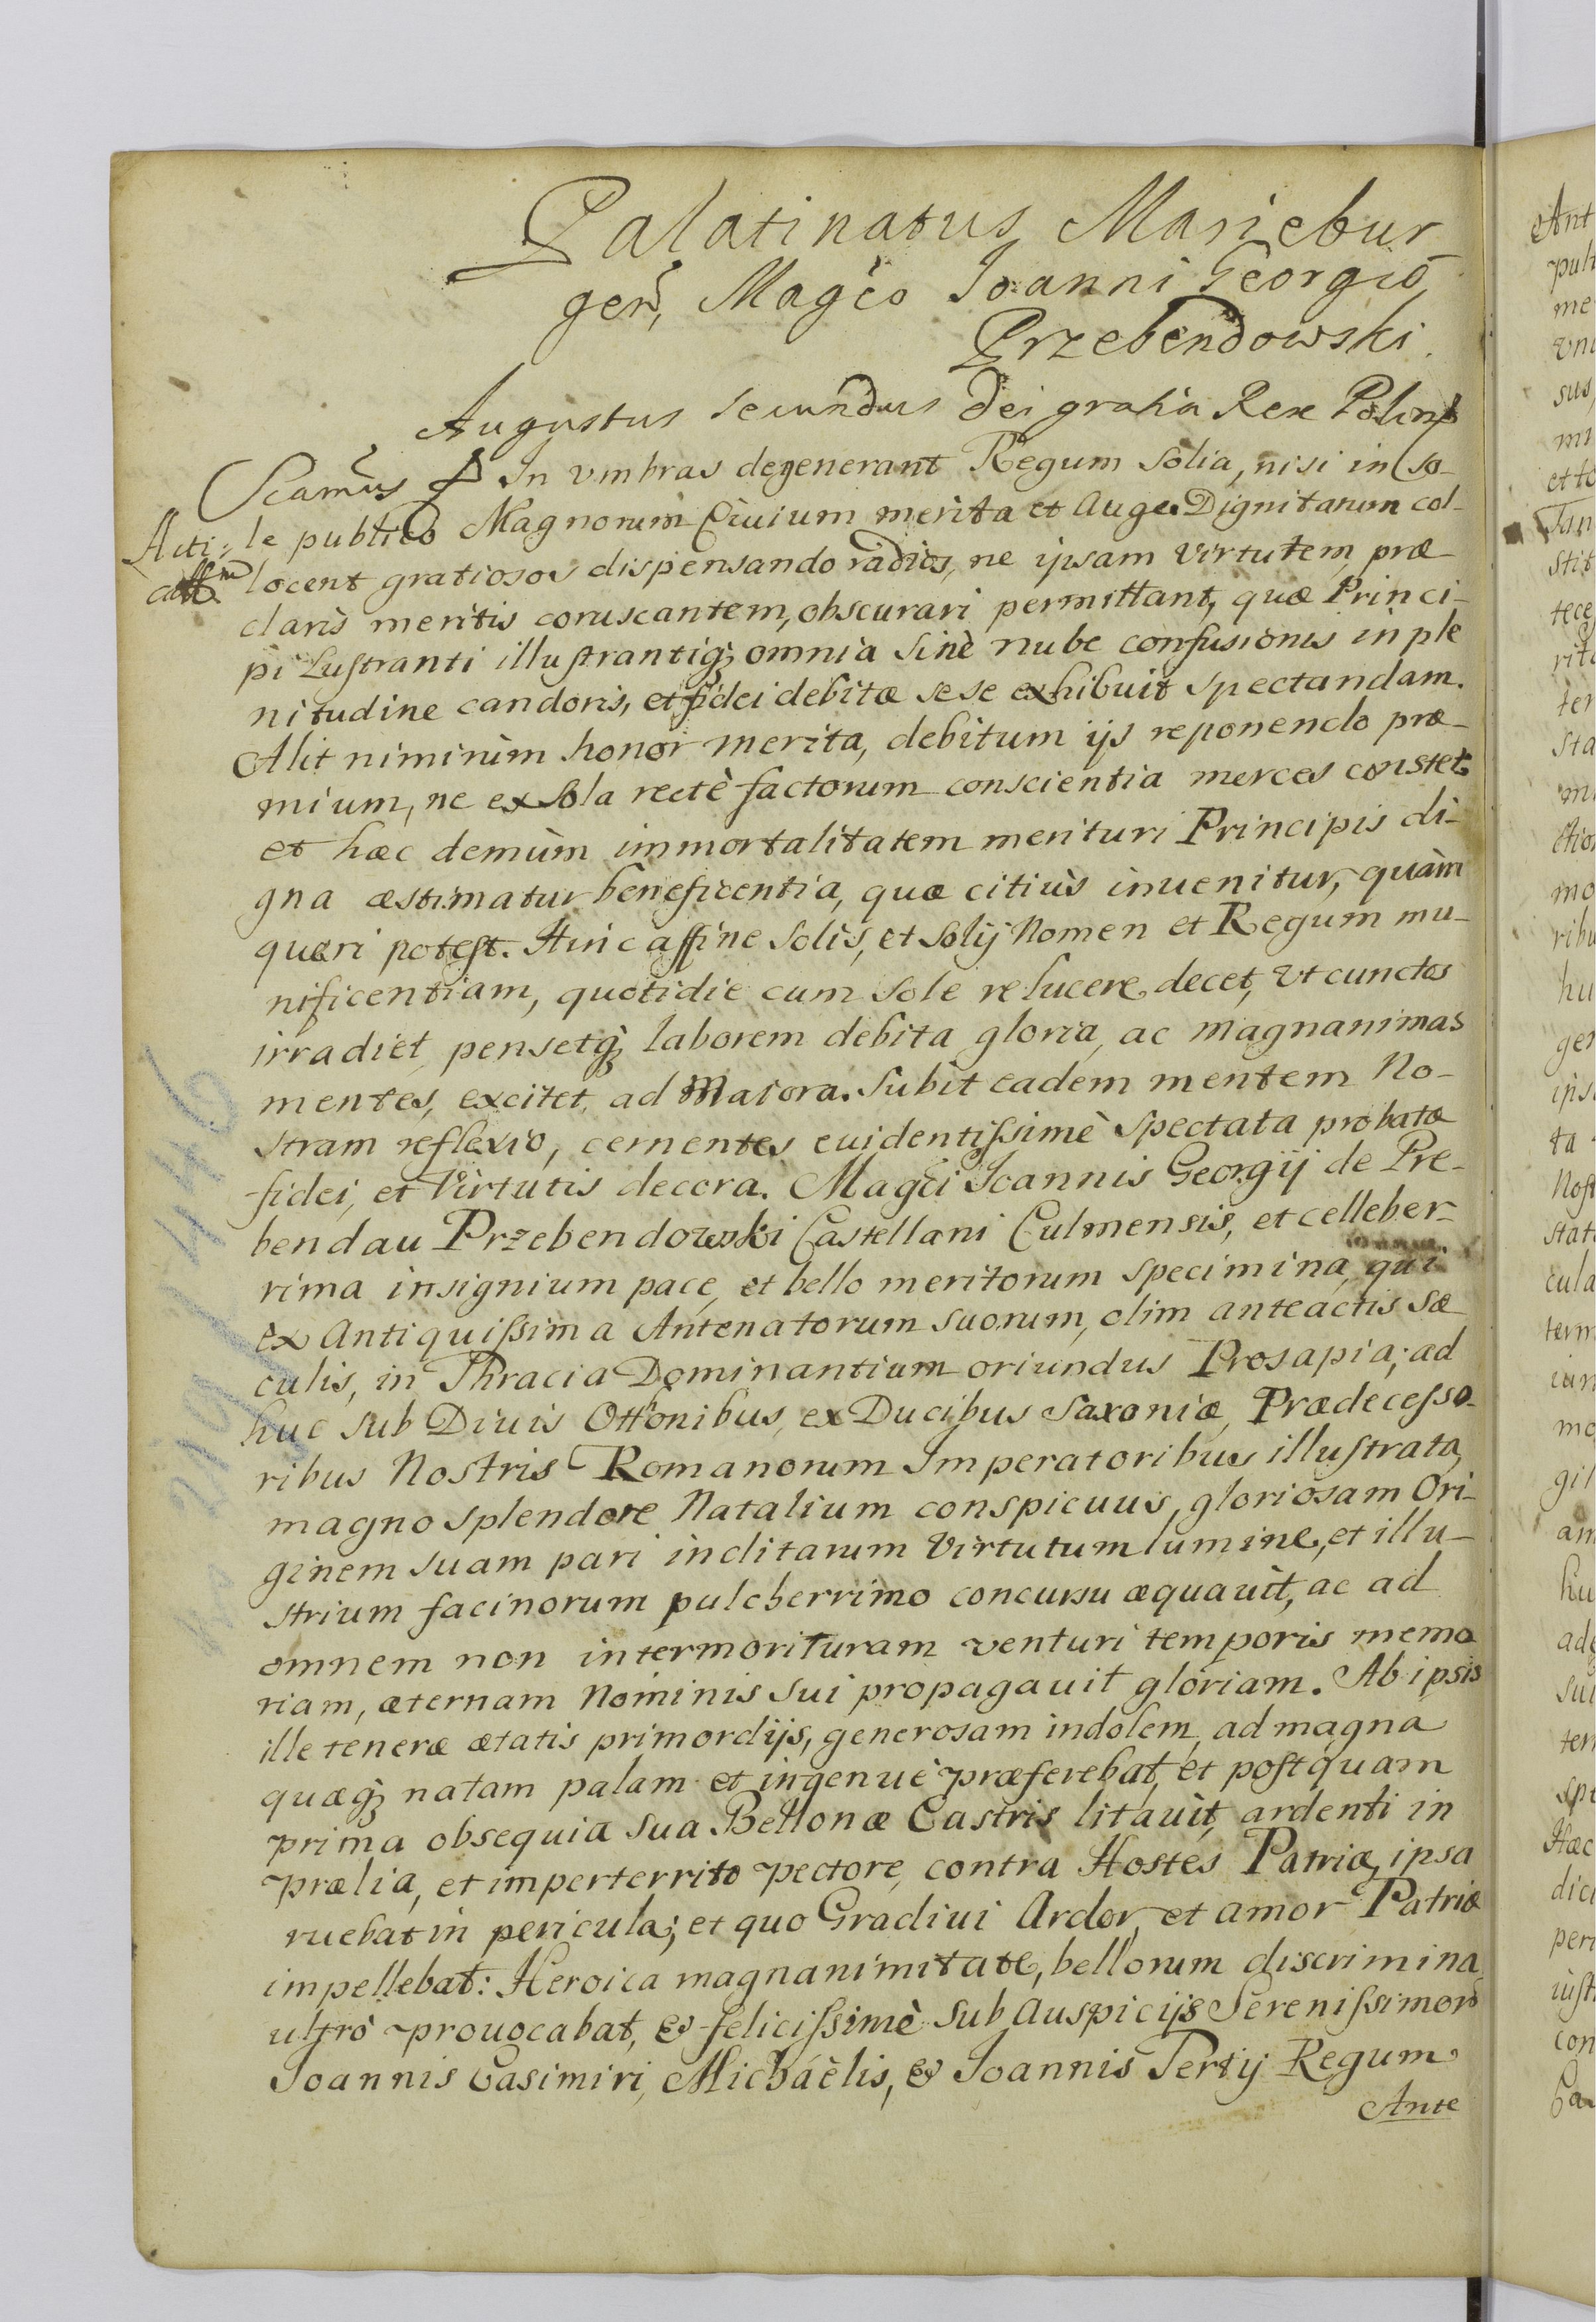 Palatinatus Mariebur
gen, Magco Joanni Georgio
Przebendowski.
Augustus Secundus Dei gratia Rex Polon
In vmbras degenerant Regum Solia, nisi in So-
le publico Magnorum Ciuium merita et Auge Dignitatum col-
locent gratiosos dispensando radios, ne ipsam Virtutem, præ
claris meritis coruscantem, obscurari permittant, quæ Princi-
pi Lustranti illustrantiq; omnia Sinè nube confusionis in ple
nitudine candoris, et fidei debitæ sese exhibuit spectandam.
Alit nimirùm honor merita, debitum ijs reponendo præ-
mium, ne ex sola rectè factorum conscientia merces constet
et hæc demùm immortalitatem merituri Principis di-
gna æstimatur beneficentia, quæ citiùs inuenitur, quàm
quæri potest. Hinc affine Solis, et Solij Nomen et Regum mu-
nificentiam, quotidie cum Sole relucere decet, vt cunctos
irradiet, pensetq; laborem debita gloria, ac magnanimas
mentes, excitet ad Maiora. Subit eadem mentem No-
stram reflexio, cernentes euidentissimè spectata probatæ
fidei, et Virtutis decora. Magci Joannis Georgij de Pre-
bendau Przebendowski Castellani Culmensis, et celleber-
rima insignium pace, et bello meritorum specimina, qui
ex Antiquissima Antenatorum suorum, olim anteactis sæ
culis, in Thracia Dominantium oriundus Prosapia; ad
huc sub Diuis Ottonibus, ex Ducibus Saxoniæ, Prædecesso-
ribus Nostris Romanorum Imperatoribus illustrata,
magno splendore Natalium conspicuus, gloriosam Ori-
ginem suam pari inclitarum Virtutum lumine, et illu-
strium facinorum pulcherrimo concursu æquauit, ac ad
omnem non intermorituram venturi temporis memo
riam, æternam Nominis sui propagauit gloriam. Ab ipsis
ille teneræ ætatis primordijs, generosam indolem, ad magna
quæq; natam palam et ingenuè præferebat, et postquam
prima obsequia sua Bellonæ Castris litauit, ardenti in
prælia, et imperterrito pectore, contra Hostes Patriæ, ipsa
ruebat in pericula; et quo Gradiui Ardor, et amor Patriæ
impellebat: Heroica magnanimitate, bellorum discrimina
ultrò prouocabat, & felicissimè sub Auspicijs Serenissimor
Joannis Casimiri, Michaèlis, & Joannis Tertij Regum
Ante